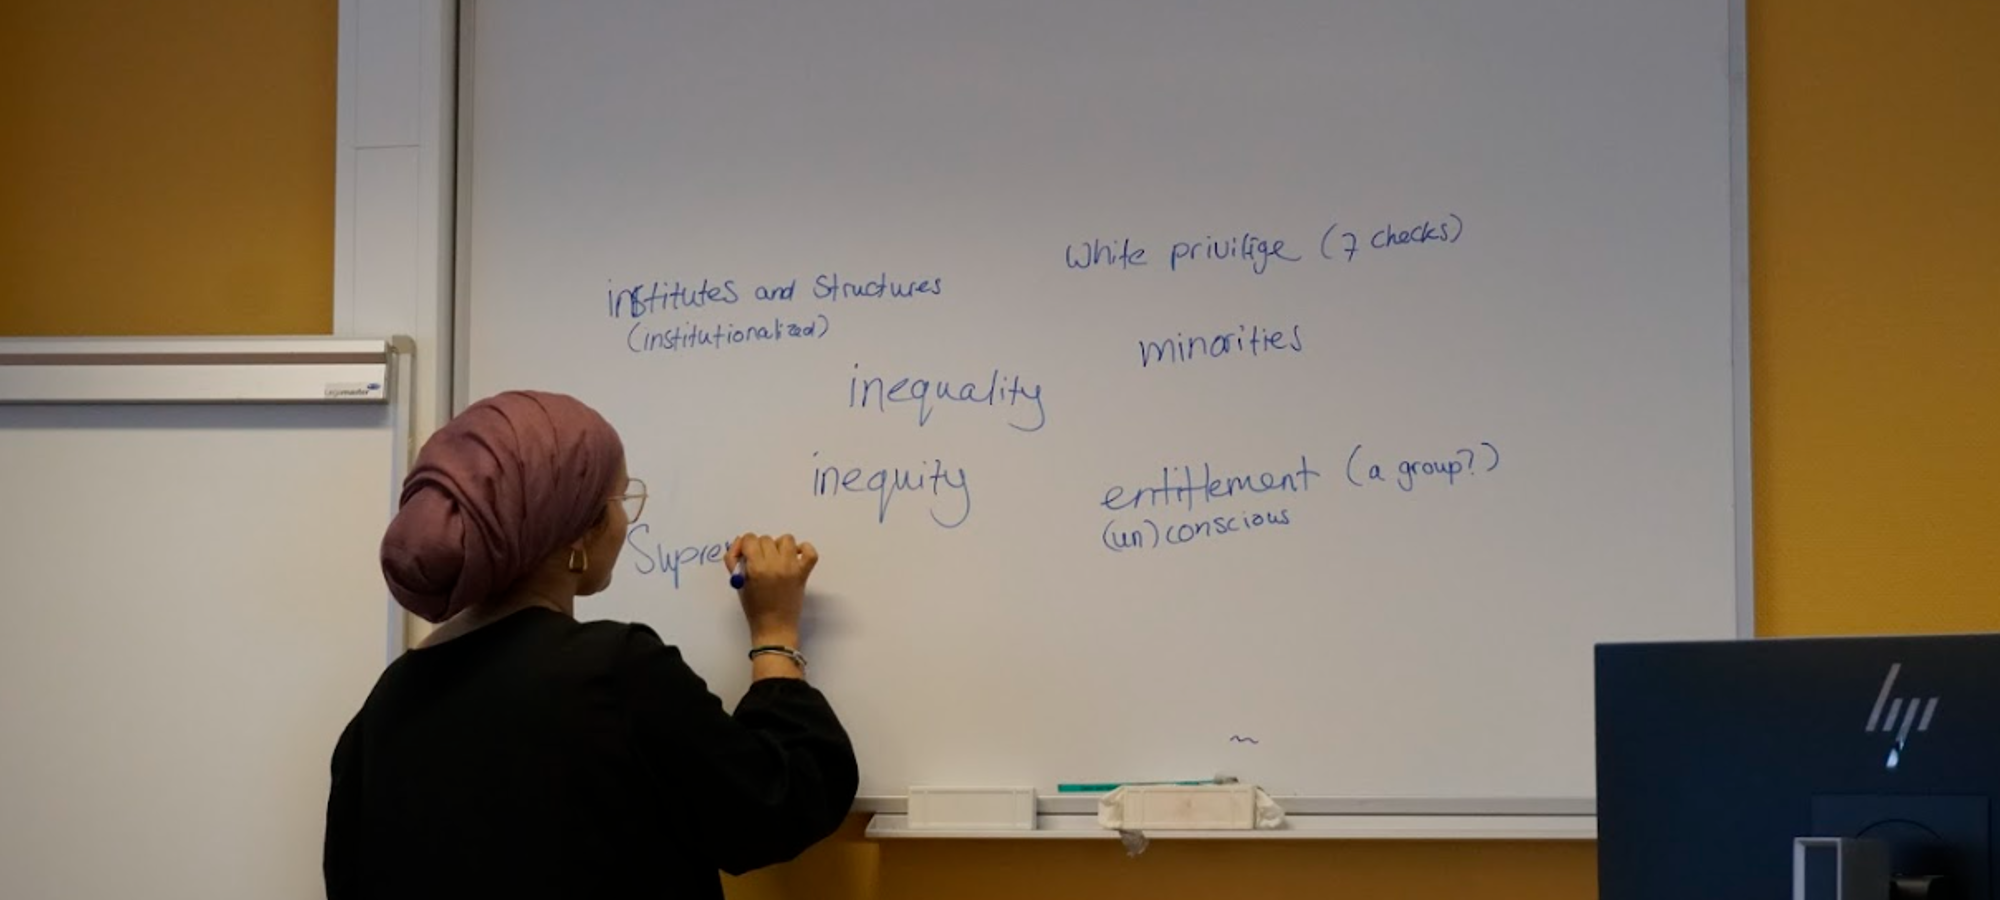 White privilige (7 checks)
institutes and structures
(institutionalized)
minorities
inequality
inequity
entitlement (a group?)
(un)conscious
Supre
Legamaster
hp